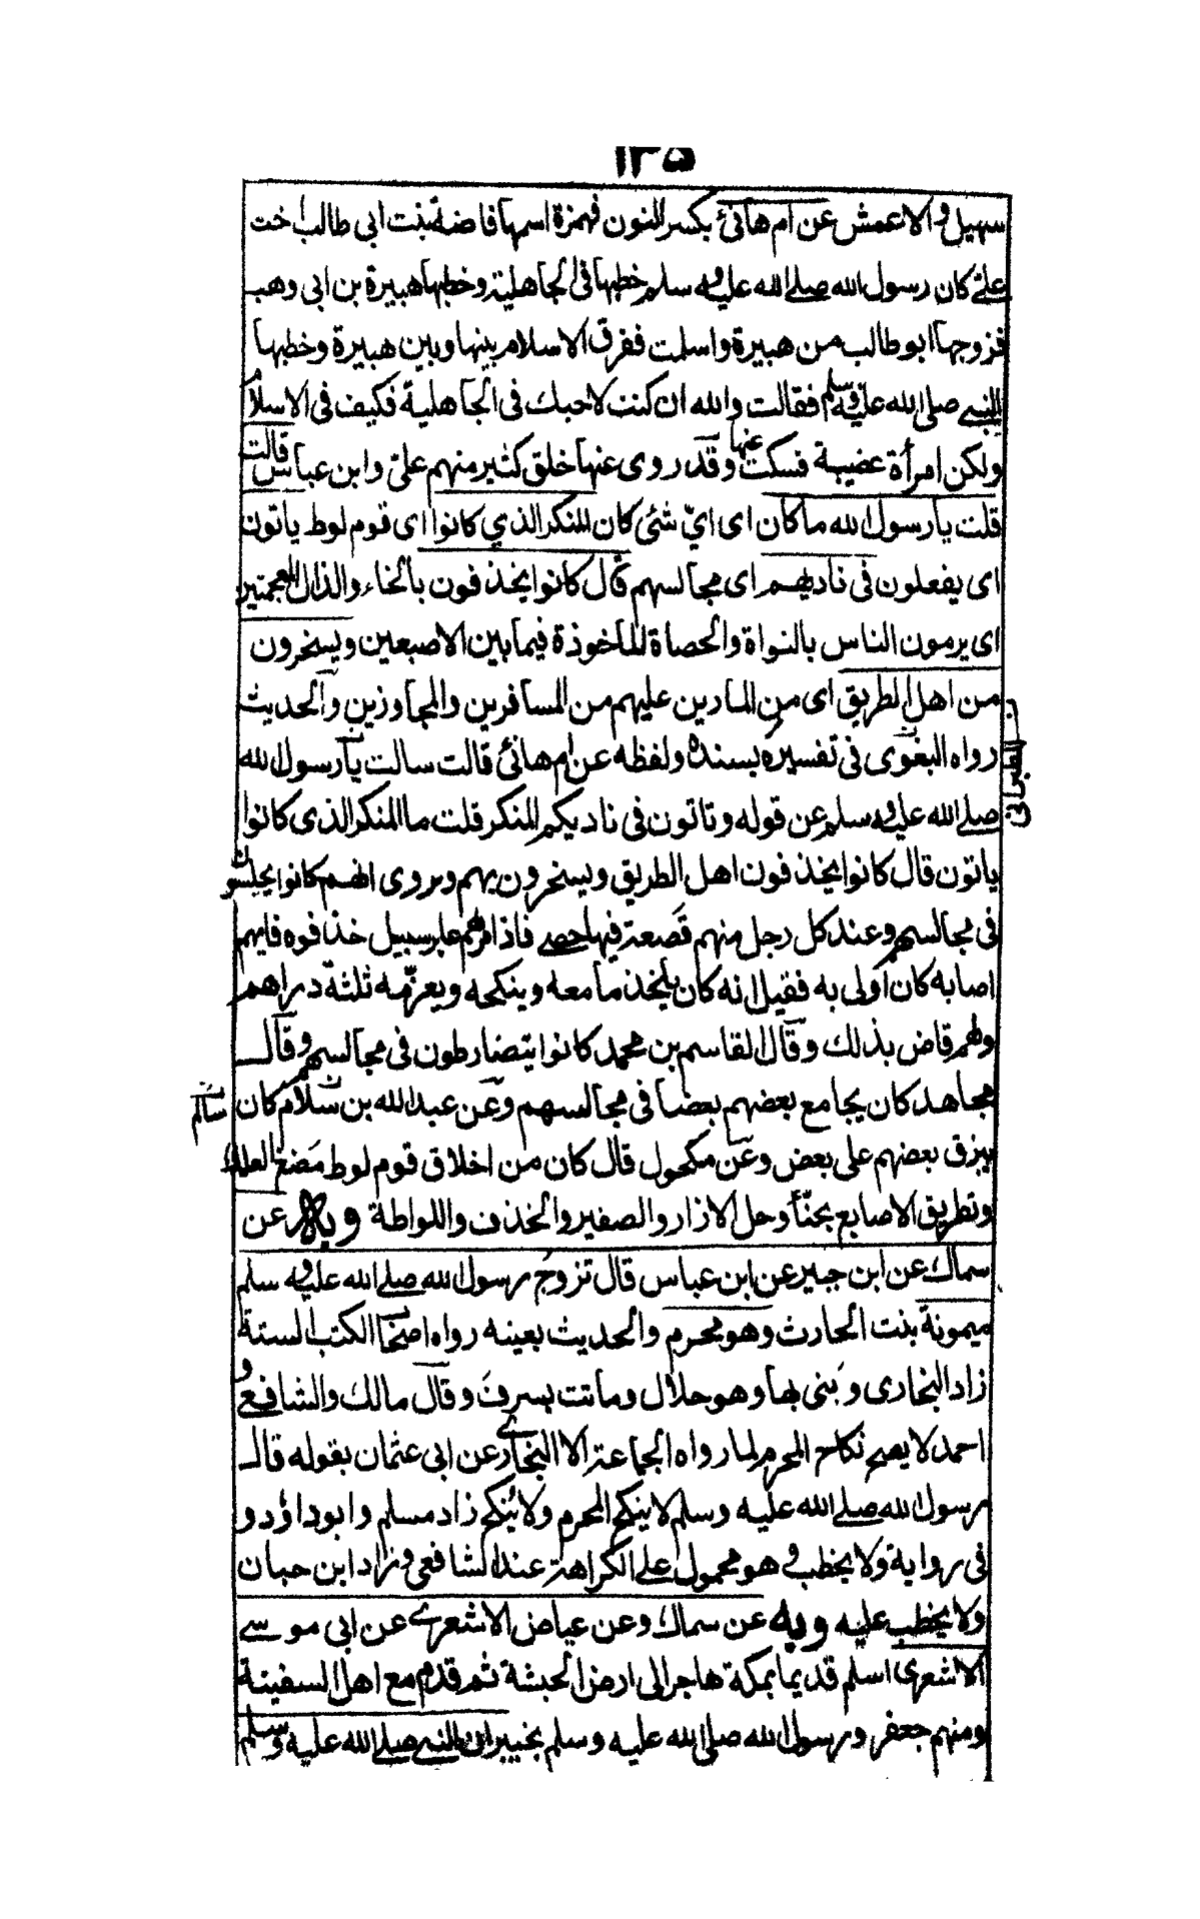 ١٣٥
سهيل والاعمش عن ام هانئ بكسر النون فهمزة اسمها فاختة بنت ابي طالب اخت
علي كان رسول الله صلى الله عليه وسلم خطبها في الجاهلية وخطبها هبيرة بن ابي وهب
فزوجها ابو طالب من هبيرة واسلمت ففرق الاسلام بينها وبين هبيرة وخطبها
النبي صلى الله عليه وسلم فقالت والله ان كنت لاحبك في الجاهلية فكيف في الاسلام
ولكن امرأة عضيبة فسكت عنها وقد روى عنها خلق كثير منهم علي وابن عباس قالت
قلت يا رسول الله ما كان اى ايّ شئ كان المنكر الذي كانوا اى قوم لوط ياتون
اى يفعلون في ناديهم اى مجالسهم قال كانوا يخذفون بالخاء والذال المعجمتين
اى يرمون الناس بالنواة والحصاة الماخوذة فيما بين الاصبعين ويسخرون
من اهل الطريق اى من المارين عليهم من المسافرين والمجاوزين والحديث
رواه البغوى في تفسيره بسنده ولفظه عن ام هانئ قالت سالت يا رسول الله
صلى الله عليه وسلم عن قوله وتاتون في ناديكم المنكر قلت ما المنكر الذى كانوا
ياتون قال كانوا يخذفون اهل الطريق ويسخرون بهم ويروى انهم كانوا يجلسون
في مجالسهم وعند كل رجل منهم قصعة فيها حصى فاذا مرّ بهم عابر سبيل خذفوه فايهم
اصابه كان اولى به فقيل انه كان ياخذ ما معه وينكحه ويغرّمه ثلثة دراهم
ولهم قاض بذلك وقال القاسم بن محمد كانوا يتضارطون في مجالسهم وقال
مجاهد كان يجامع بعضهم بعضا في مجالسهم وعن عبد الله بن سلام كان
يبزق بعضهم على بعض وعن مكحول قال كان من اخلاق قوم لوط مضغ العلك
وتطريق الاصابع بحنّاء وحل الازار والصفير والخذف واللواطة وبه عن
سماك عن ابن جبير عن ابن عباس قال تزوج رسول الله صلى الله عليه وسلم
ميمونة بنت الحارث وهو محرم والحديث بعينه رواه اصحاب الكتب الستة
زاد البخارى وبنى بها وهو حلال وماتت بسرف وقال مالك والشافعي و
احمد لا يصح نكاح المحرم لما رواه الجماعة الا البخاري عن ابي عثمان بقوله قال
رسول الله صلى الله عليه وسلم لا ينكح المحرم ولا يُنكح زاد مسلم وابو داؤد و
في رواية ولا يخطب وهو محمول على الكراهة عند الشافعي وزاد ابن حبان
ولا يخطب عليه وبه عن سماك وعن عياض الاشعري عن ابي موسى
الاشعرى اسلم قديما بمكة هاجر الى ارض الحبشة ثم قدم مع اهل السفينة
ومنهم جعفر ورسول الله صلى الله عليه وسلم بخيبر ان النبي صلى الله عليه وسلم
الطبراني
سالم